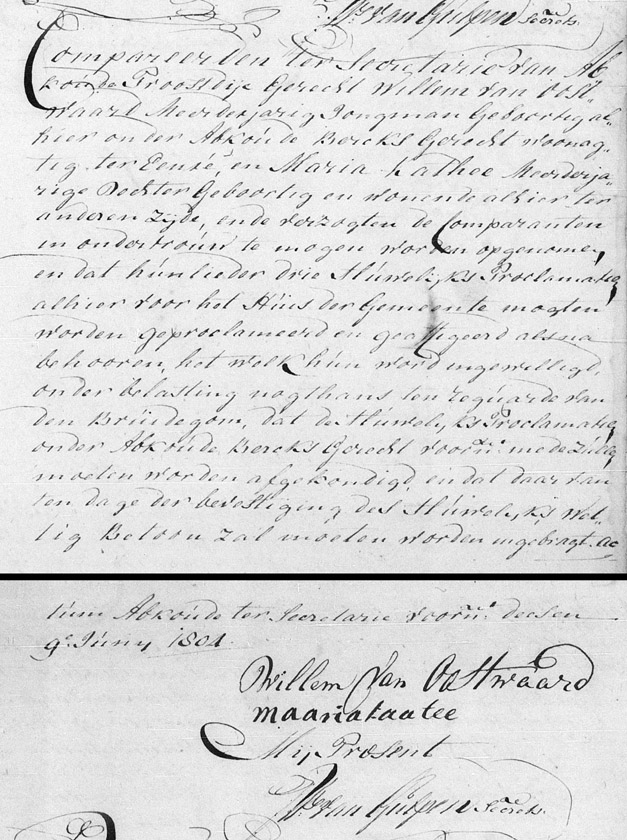 W: van Gulpen Secrets.
Compareerden ter Secretarie van Ab
koude Proostdije Gerecht Willem van Oost„
waard Meerderjarig Jongman Geboortig al„
hier onder Abkoude Bercks Gerecht woonag„
tig ter Eenre, en Maria Kathee Meerderja„
rige Dochter Geboortig en wonende alhier ter
anderen Zijde, ende verzogten de Comparanten
in ondertrouw te mogen worden opgenomen,
en dat hunlieder drie Huwelijks Proclamatien
alhier voor het Huis der Gemeente mogten
worden geproclameerd en geaffigeerd als na
behooren, het welk hun word ingewilligd,
onder belasting nogthans ten reguarde van
den Bruidegom, dat de Huwelijks Proclamatien
onder Abkoude Bercks Gerecht voorn: mede zullen
moeten worden afgekondigd, en dat daar van
ten dage der bevestiging des Huwelijks wet„
tig Betoon zal moeten worden ingebragt. Ac
tum Abkoude ter Secretarie voorn: deesen
9e Juny 1801.
Willem van Oostwaard
maariakaatee
Mij Præsent
W: van Gulpen Secrets.